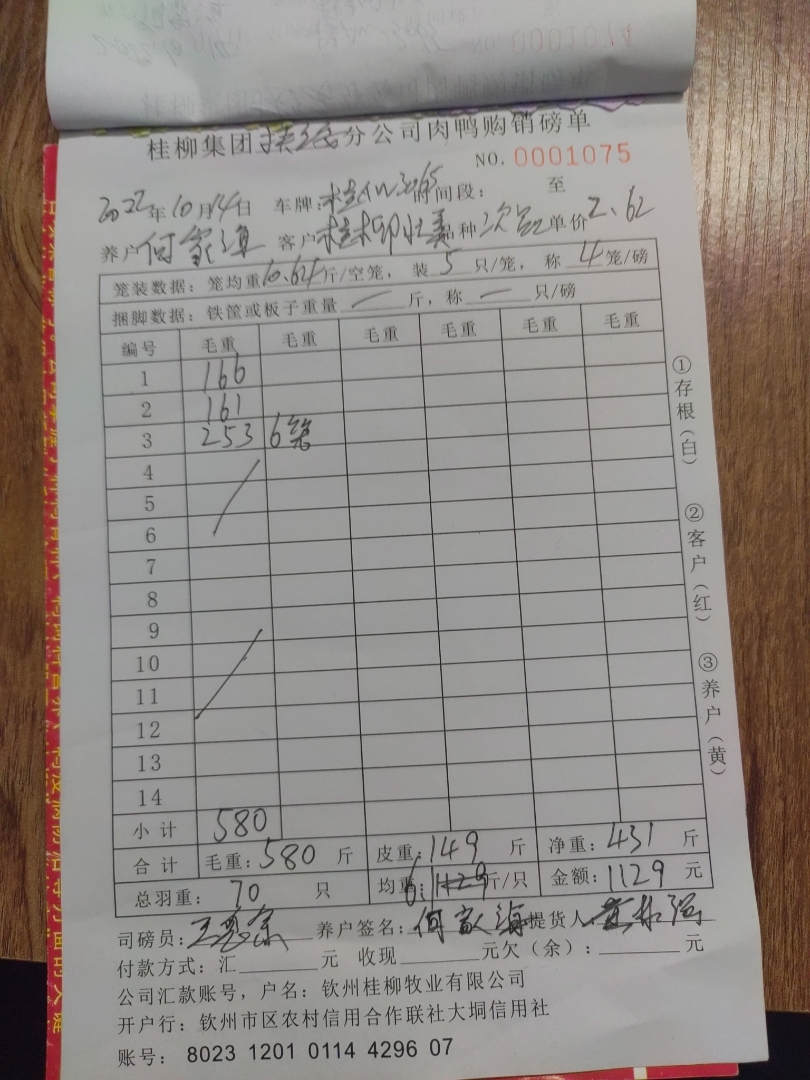 NO. 0001074
桂柳集团分公司肉鸭购销磅单
NO. 0001075
2022年10月14日 车牌: 时间段: 至
养户何家海 客户桂林 品种次品 单价2.62
笼装数据: 笼均重10.64斤/空笼, 装5只/笼, 称4笼/磅
捆脚数据: 铁筐或板子重量—斤, 称—只/磅
编号 毛重 毛重 毛重 毛重 毛重 毛重
1 166
2 161
3 253 6笼
4
5
6
7
8
9
10
11
12
13
14
小计 580
合计 毛重: 580 斤 皮重: 149 斤 净重: 431 斤
总羽重: 70 只 均重: 斤/只 金额: 1129 元
司磅员: 养户签名: 何家海 提货人:
付款方式: 汇 元 收现 元欠(余): 元
公司汇款账号, 户名: 钦州桂柳牧业有限公司
开户行: 钦州市区农村信用合作联社大垌信用社
账号: 8023 1201 0114 4296 07
①存根(白)
②客户(红)
③养户(黄)